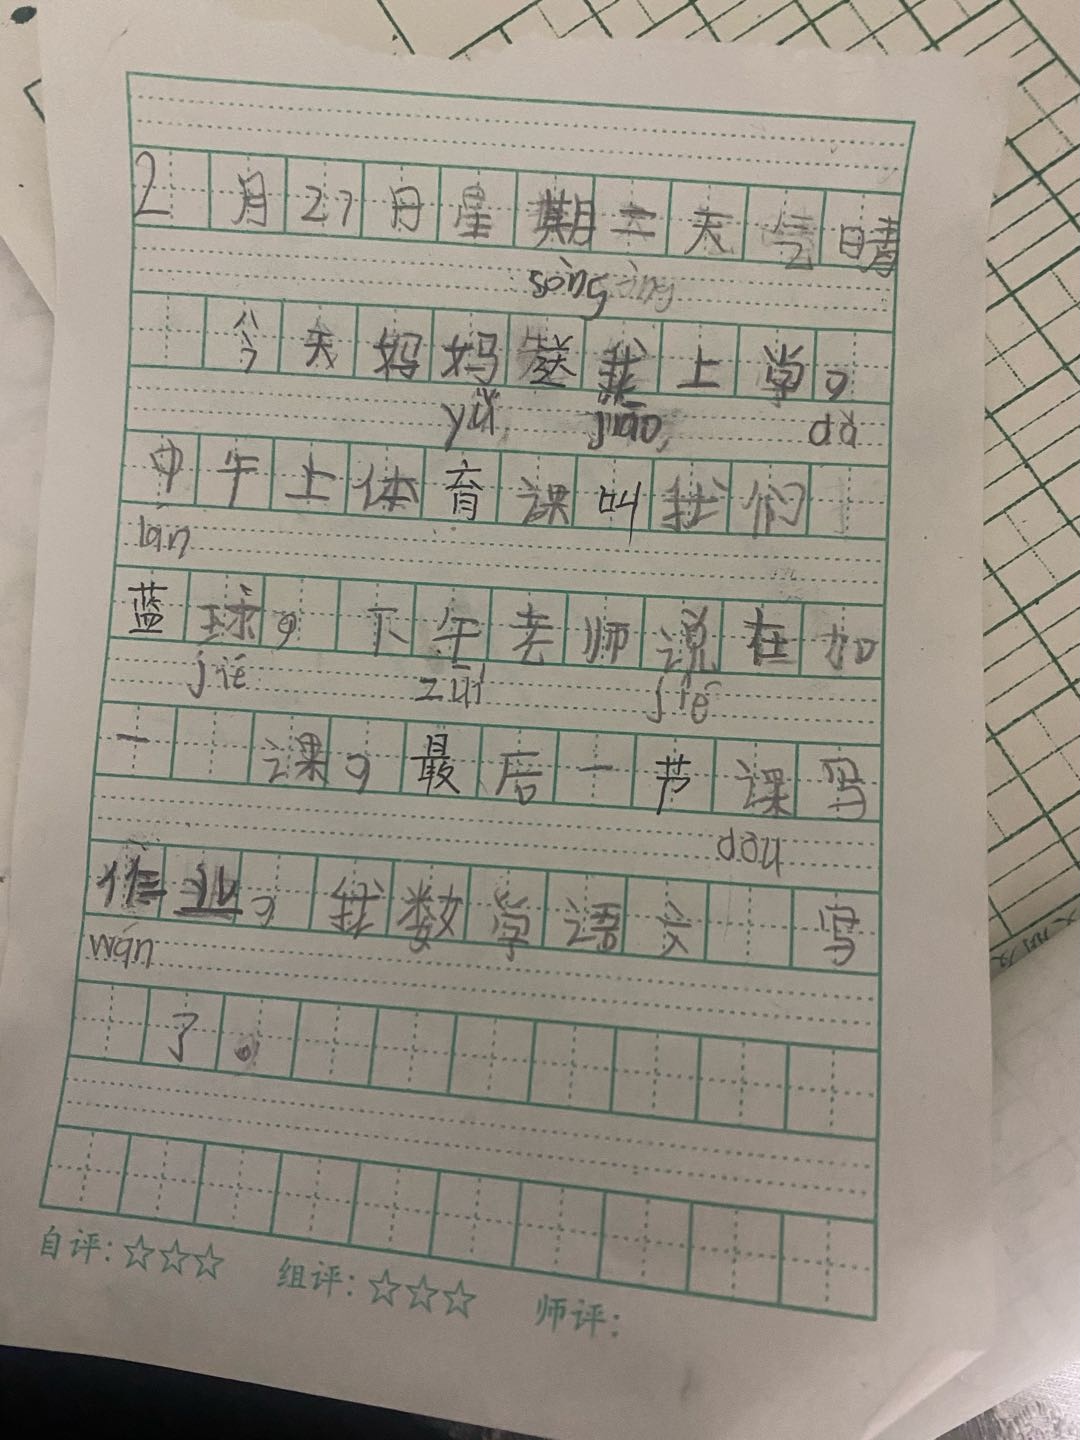 2月27日星期二天气晴
sòng
今天妈妈送我上学,
yù jiāo dǎ
中午上体育课叫我们
lán
蓝球,下午老师说在加
jié zuì jié
一 课,最后一节课写
dōu
作业,我数学语文 写
wán
了。
自评:☆☆☆ 组评:☆☆☆ 师评: